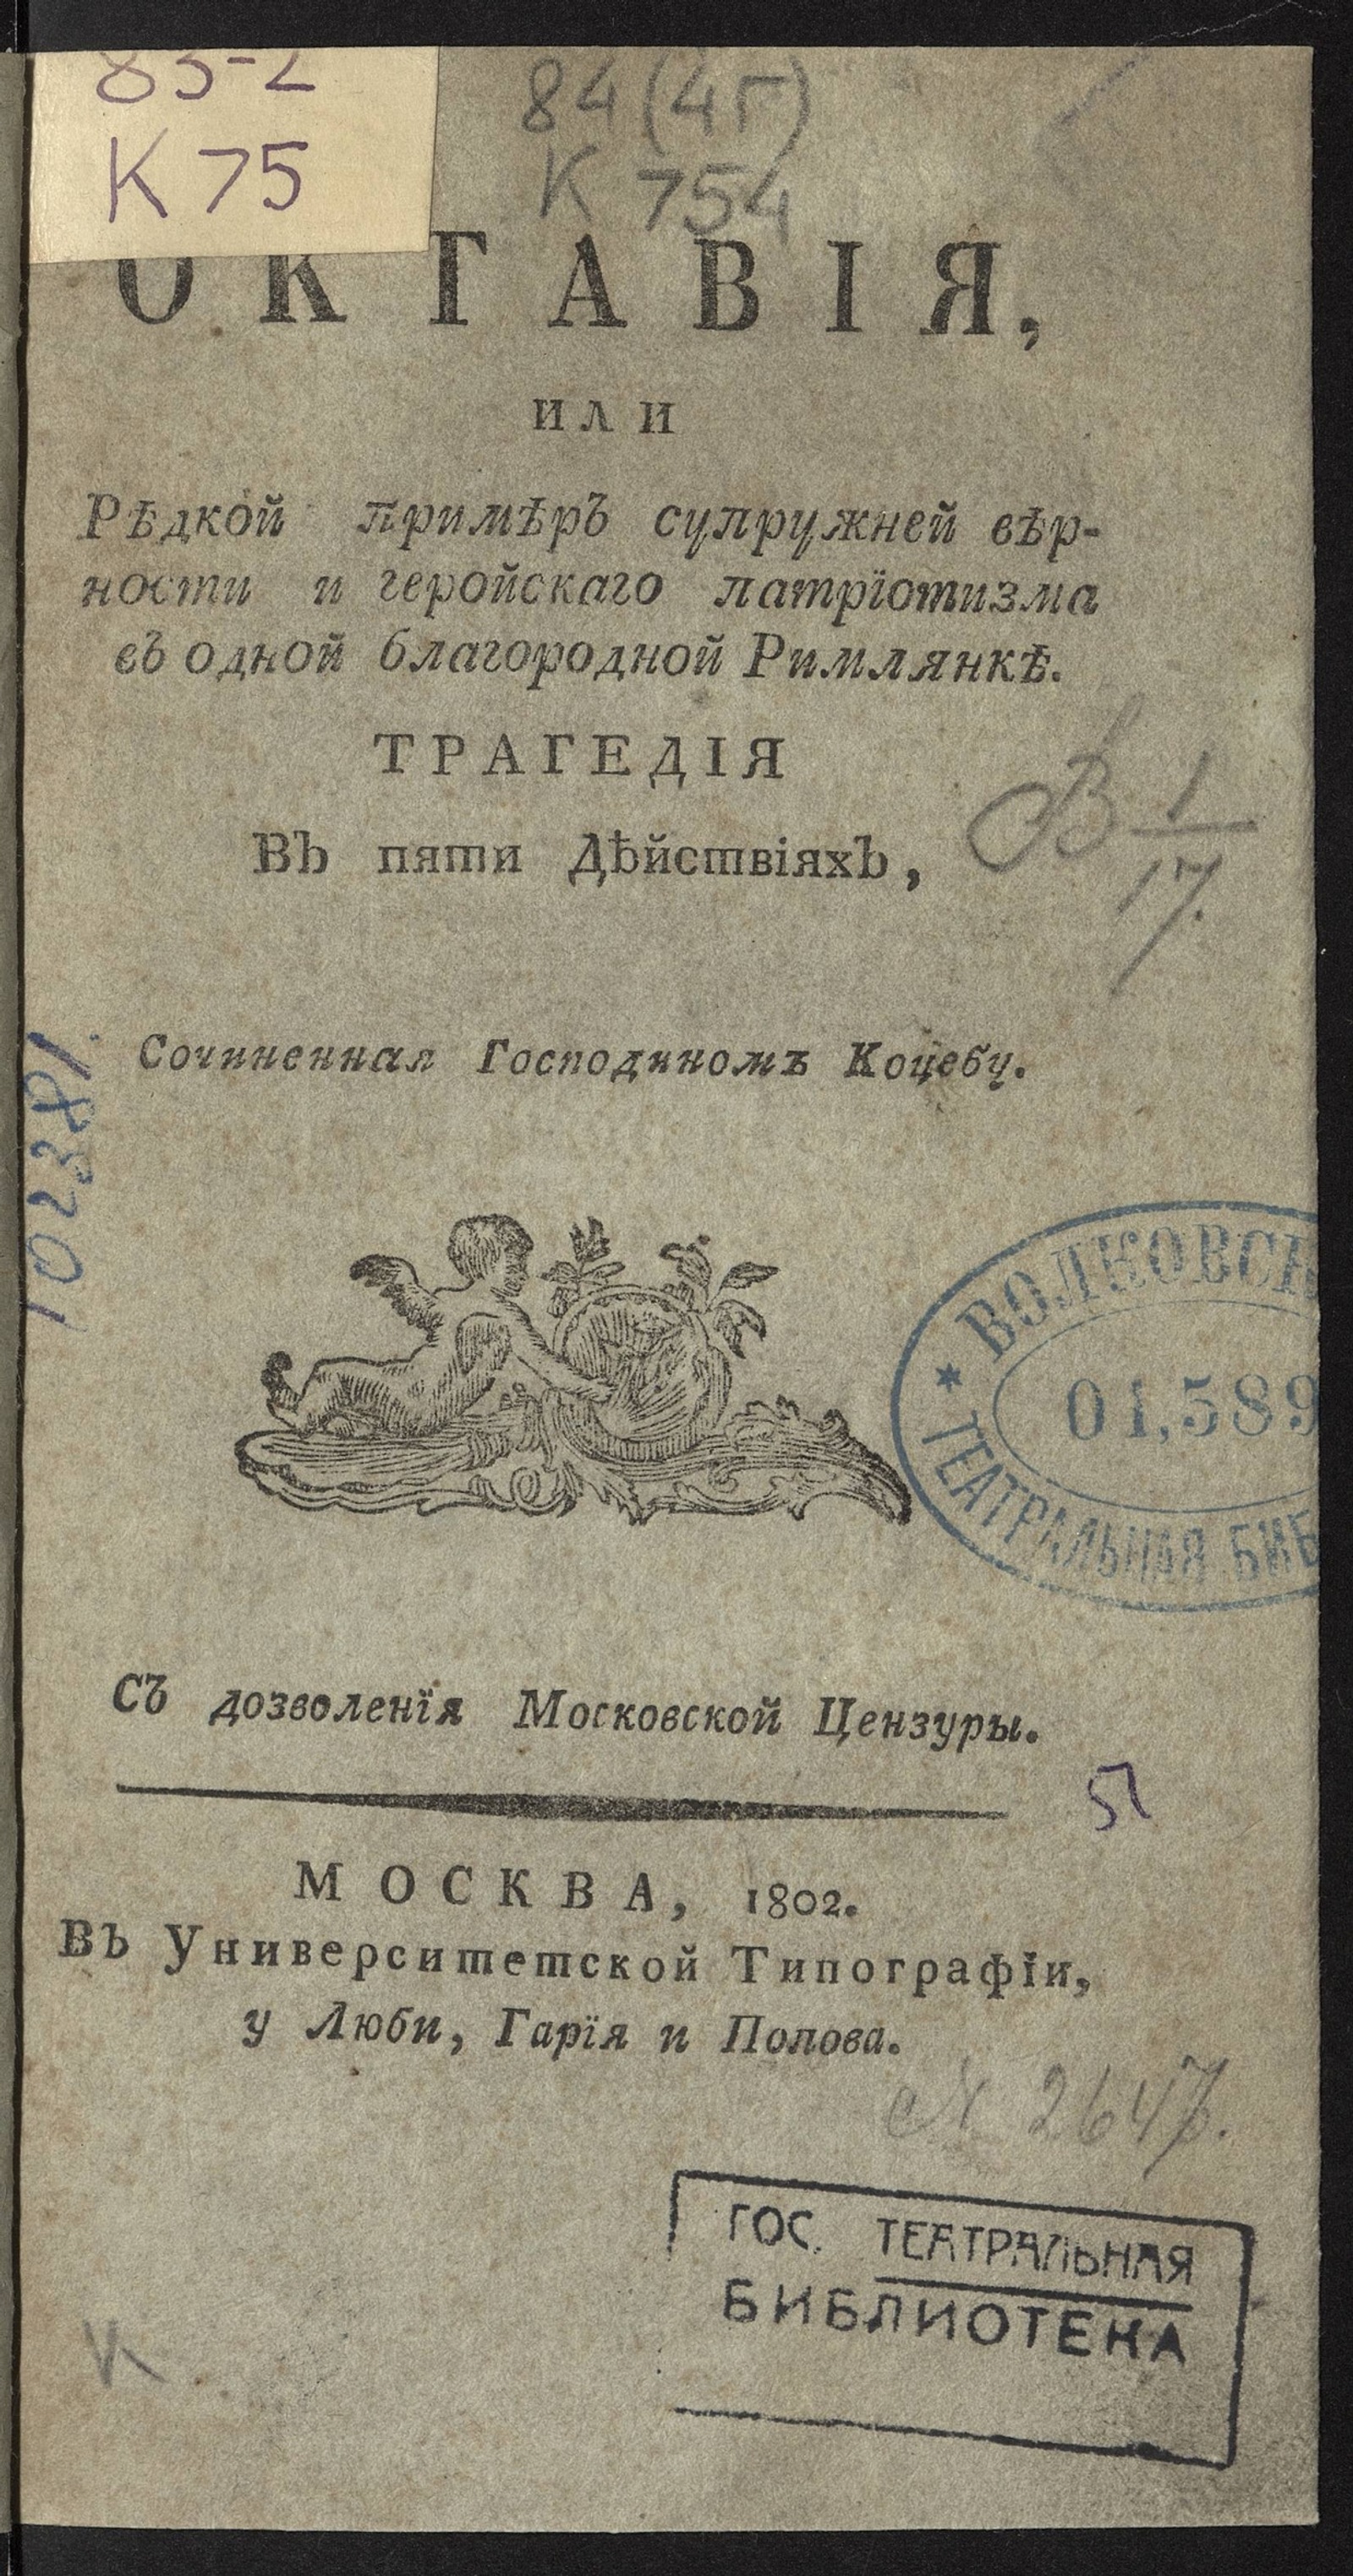 85-2
К 75
84(4Г)
К 754
ОКТАВІЯ,
ИЛИ
Рѣдкой примѣръ супружней вѣр-
ности и геройскаго патріотизма
въ одной благородной Римлянкѣ.
ТРАГЕДІЯ
Въ пяти Дѣйствіяхъ,
В 1
17.
Сочиненная Господиномъ Коцебу.
102381.
ВОЛКОВСК
01,589
★ ТЕАТРАЛЬНАЯ БИБ
Съ дозволенїя Московской Цензуры.
51
МОСКВА, 1802.
Въ Университетской Типографїи,
у Люби, Гарїя и Попова.
№ 2647.
ГОС. ТЕАТРАЛЬНАЯ
БИБЛИОТЕКА
К